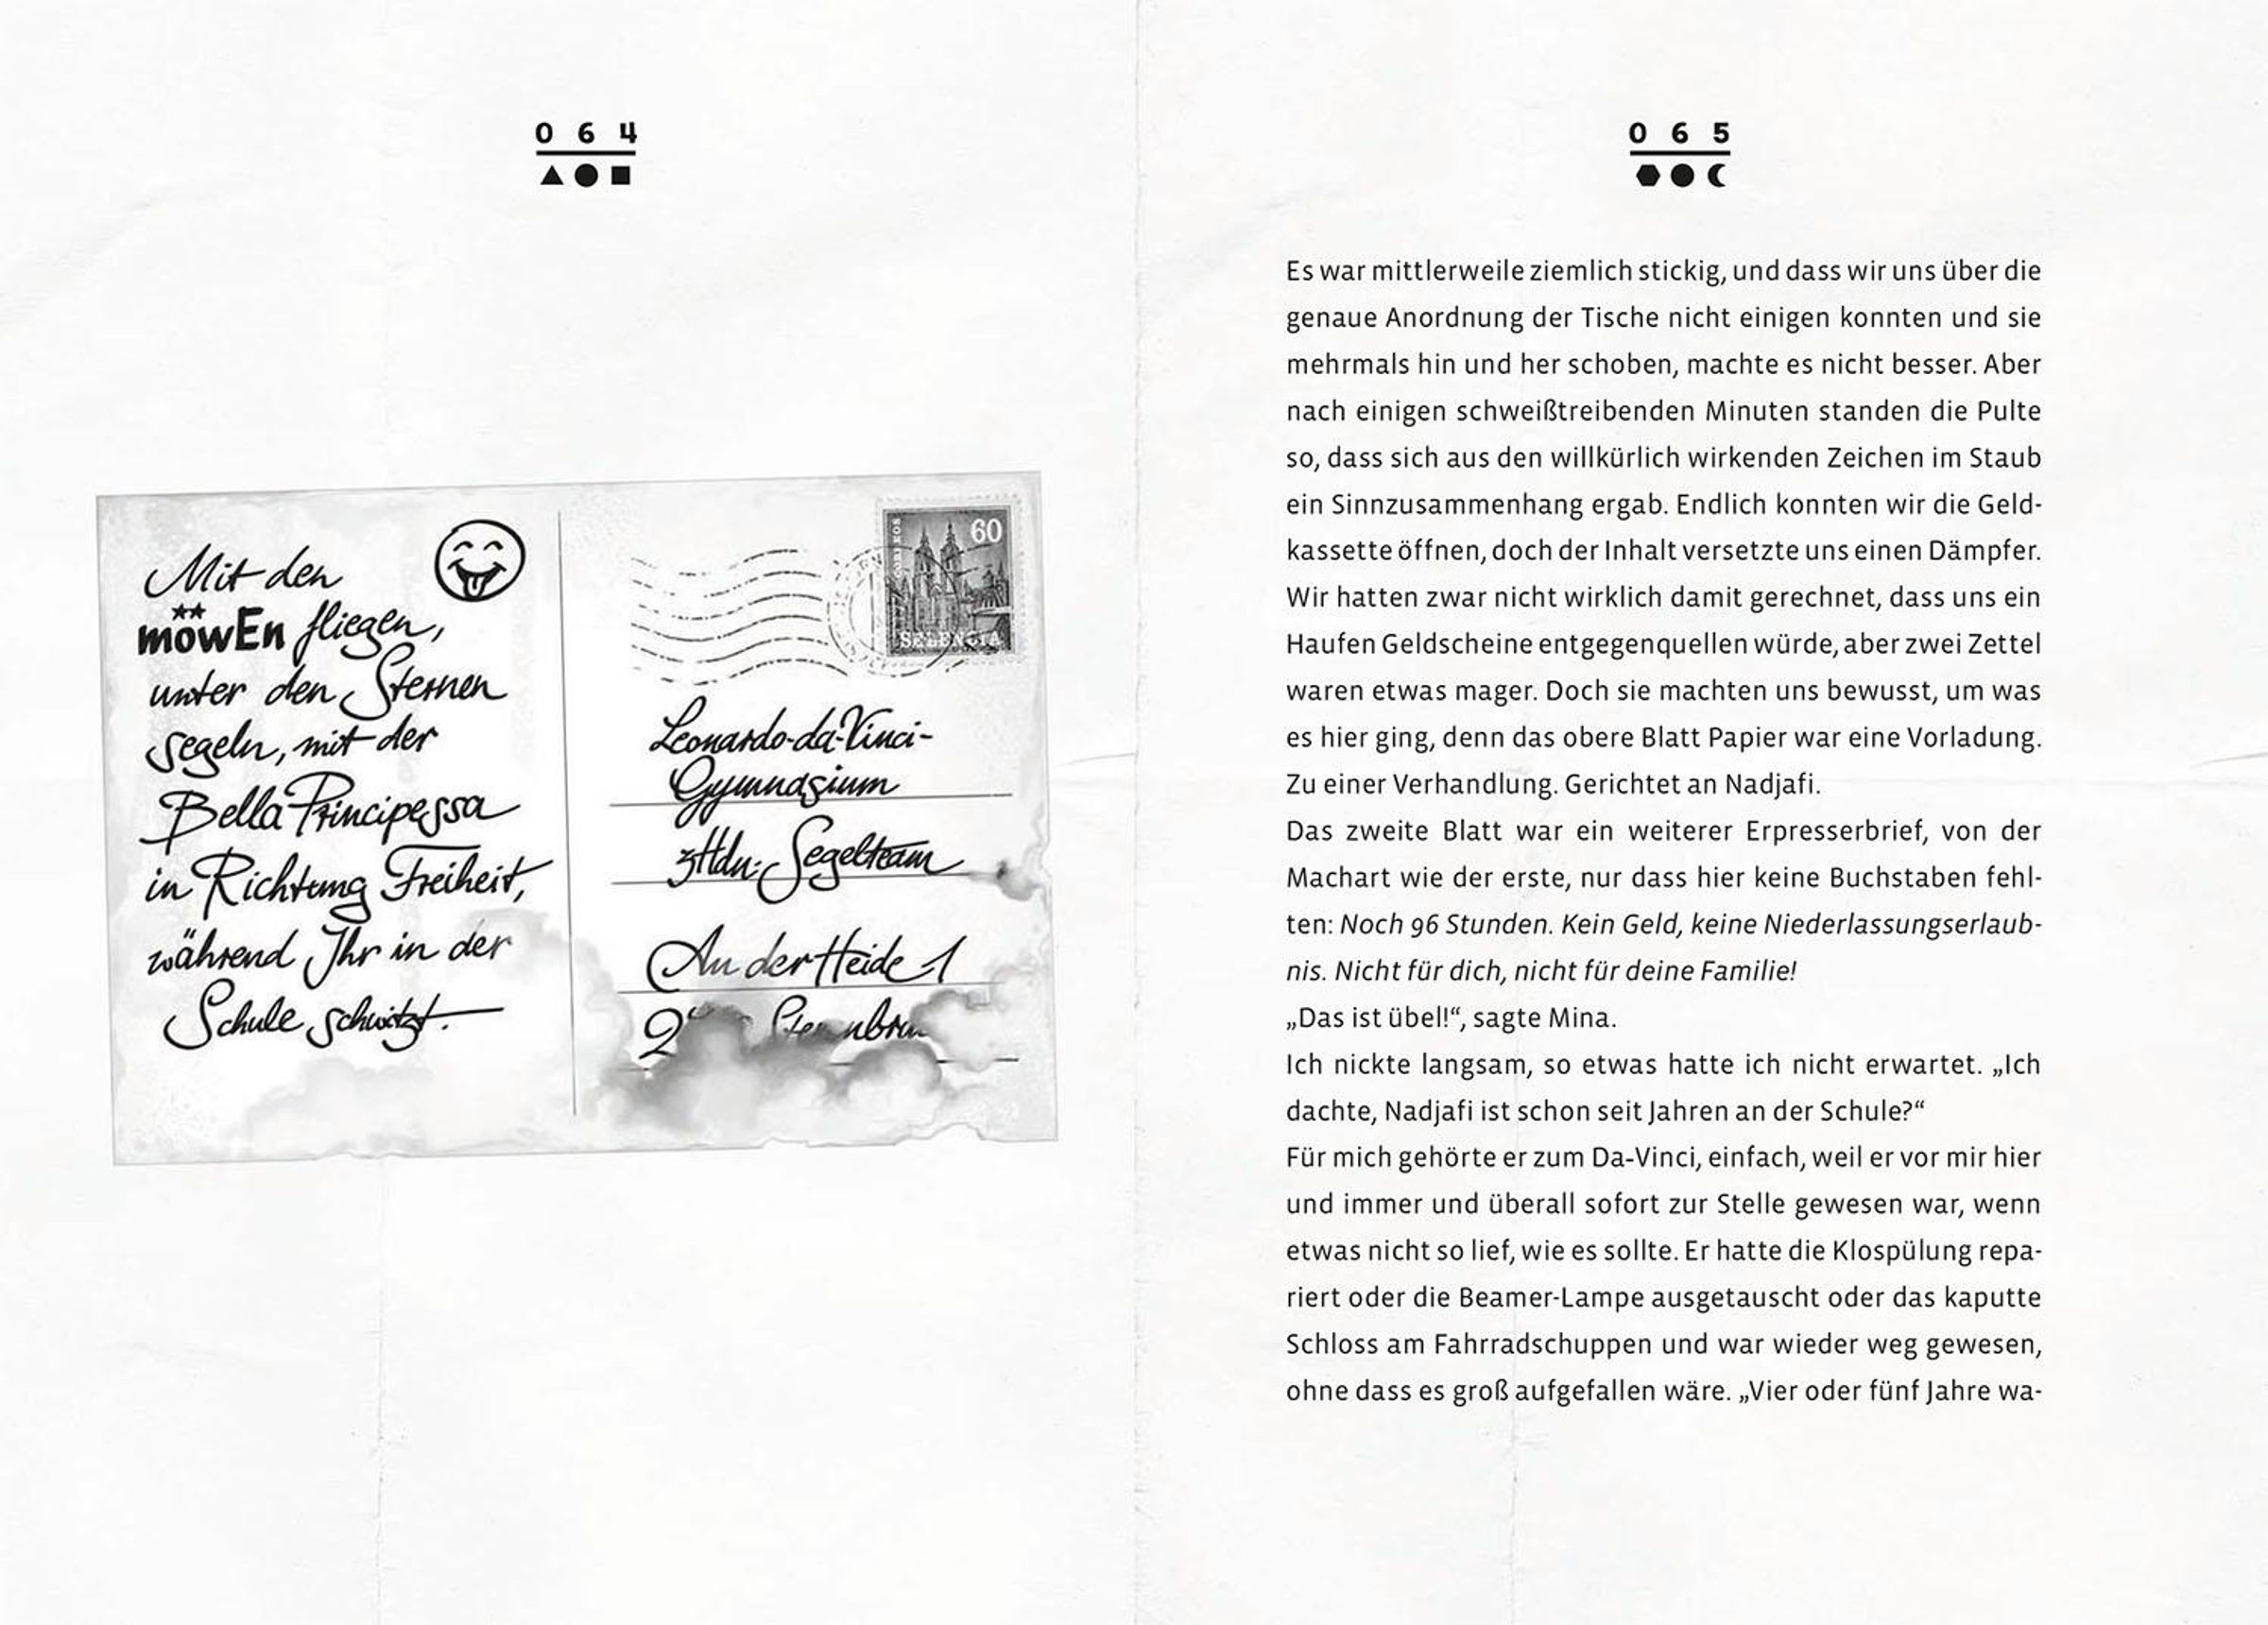 064
Mit den
möwEn fliegen,
unter den Sternen
segeln, mit der
Bella Principessa
in Richtung Freiheit,
während Ihr in der
Schule schwitzt.
60
SELENCIA
Leonardo-da-Vinci-
Gymnasium
zHdn: Segelteam
An der Heide 1
065
Es war mittlerweile ziemlich stickig, und dass wir uns über die
genaue Anordnung der Tische nicht einigen konnten und sie
mehrmals hin und her schoben, machte es nicht besser. Aber
nach einigen schweißtreibenden Minuten standen die Pulte
so, dass sich aus den willkürlich wirkenden Zeichen im Staub
ein Sinnzusammenhang ergab. Endlich konnten wir die Geld-
kassette öffnen, doch der Inhalt versetzte uns einen Dämpfer.
Wir hatten zwar nicht wirklich damit gerechnet, dass uns ein
Haufen Geldscheine entgegenquellen würde, aber zwei Zettel
waren etwas mager. Doch sie machten uns bewusst, um was
es hier ging, denn das obere Blatt Papier war eine Vorladung.
Zu einer Verhandlung. Gerichtet an Nadjafi.
Das zweite Blatt war ein weiterer Erpresserbrief, von der
Machart wie der erste, nur dass hier keine Buchstaben fehl-
ten: Noch 96 Stunden. Kein Geld, keine Niederlassungserlaub-
nis. Nicht für dich, nicht für deine Familie!
„Das ist übel!“, sagte Mina.
Ich nickte langsam, so etwas hatte ich nicht erwartet. „Ich
dachte, Nadjafi ist schon seit Jahren an der Schule?“
Für mich gehörte er zum Da-Vinci, einfach, weil er vor mir hier
und immer und überall sofort zur Stelle gewesen war, wenn
etwas nicht so lief, wie es sollte. Er hatte die Klospülung repa-
riert oder die Beamer-Lampe ausgetauscht oder das kaputte
Schloss am Fahrradschuppen und war wieder weg gewesen,
ohne dass es groß aufgefallen wäre. „Vier oder fünf Jahre wa-